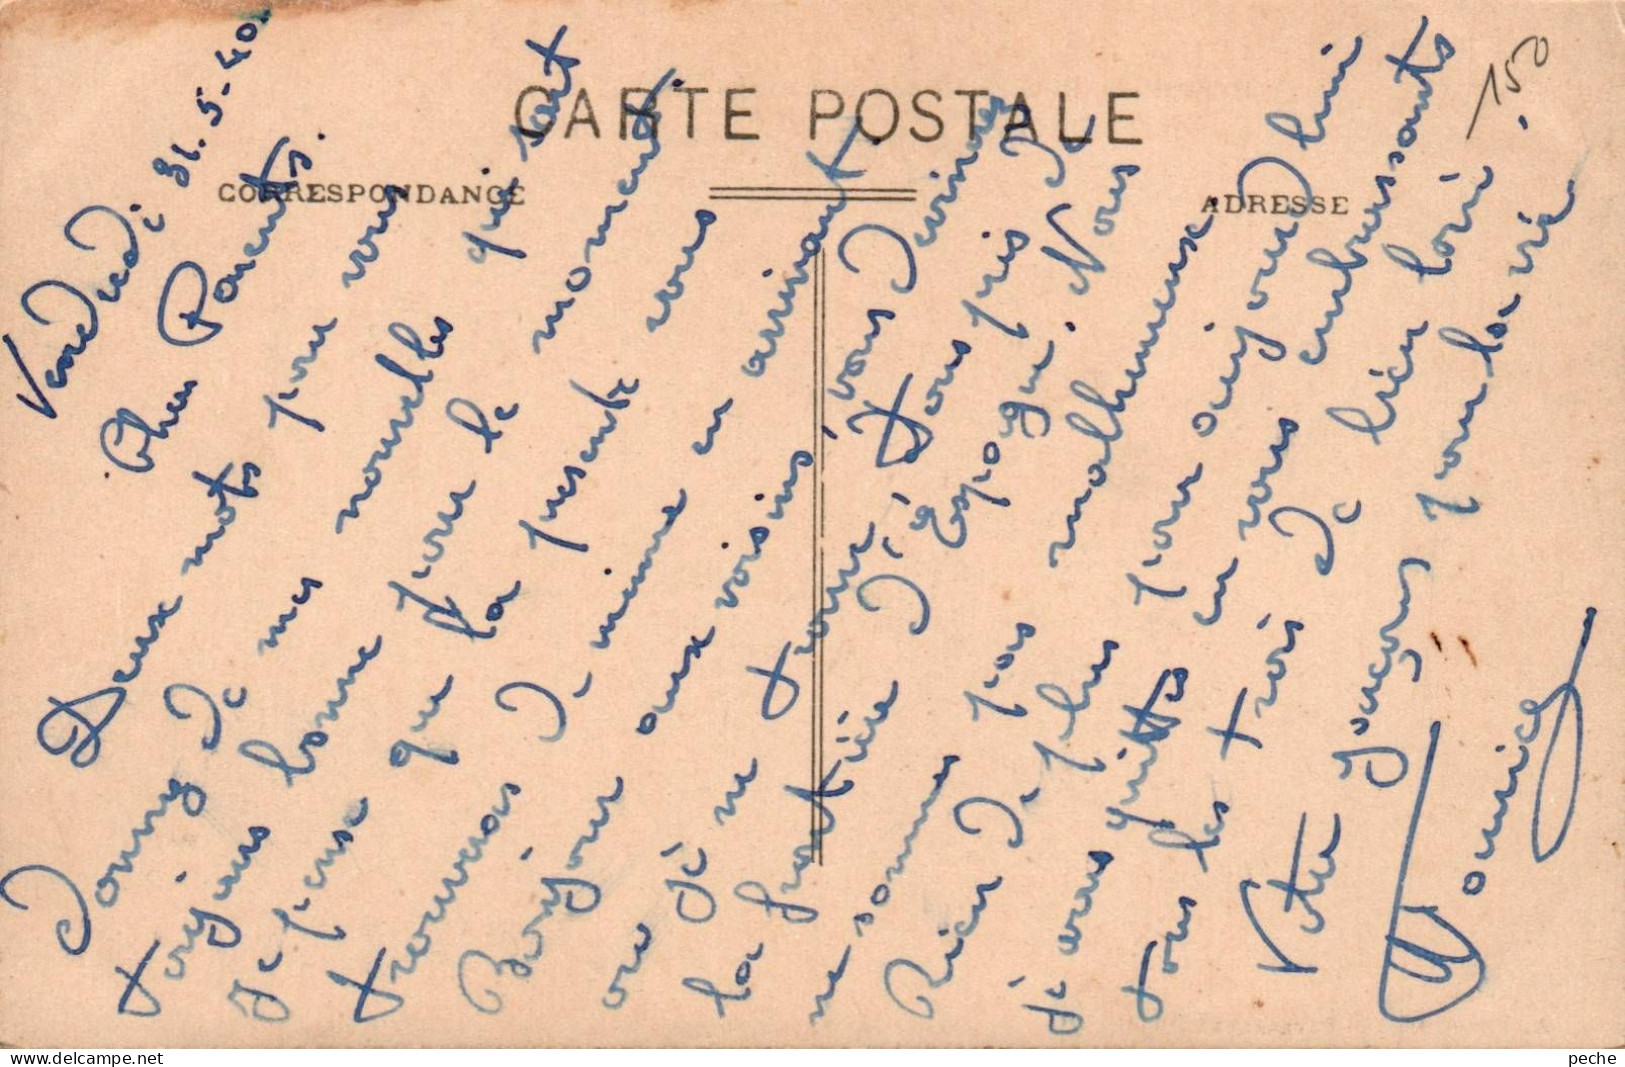 CARTE POSTALE
CORRESPONDANCE
ADRESSE
150
Vendredi 31.5-40.
Cher Parents.
Deux mots pour vous
donner de mes nouvelles qui sont
toujours bonne pour le moment.
Je pense que la presente vous
trouveras de même en arrivant.
Bonjour aux voisins, vous devinez
ou je me trouve a tous pris de
la frontière d'éspagne. Nous
ne sommes pas malheureux.
Rien de plus pour aujourd'hui
je vous quittes en vous embrassants
tous les trois de bien loin.
Votre pour la vie
Maurice
peche
www.delcampe.net